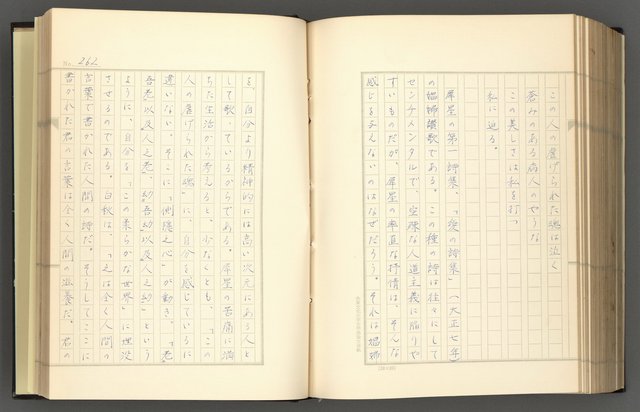 この人の虐げられた魂は泣く
蒼みのある病人のやうな
この美しさは私を打つ
私に迫る。
犀星の第一詩集、「愛の詩集」(大正七年)
の娼婦讃歌である。この種の詩は往々にして
センチメンタルで、空漠な人道主義に陥りや
すいものだが、犀星の率直な抒情は、そんな
感じを与えないのはなぜだろう。それは娼婦
No. 262
を、自分より精神的には高い次元にある人と
して歌っているからである。犀星の苦痛に満
ちた生活から考えると、少なくとも、「この
人の虐げられた魂」に、自分を感じているに
違いない。そこに「惻隠之心」が動き、「老
吾老以及人之老、幼吾幼以及人之幼」という
ように、自分を「この柔らかな世界」に埋没
させるのである。白秋は、「之は全く人間の
言葉で書かれた人間の詩だ。そうしてここに
書かれた君の言葉は全く人間の滋養だ。君の